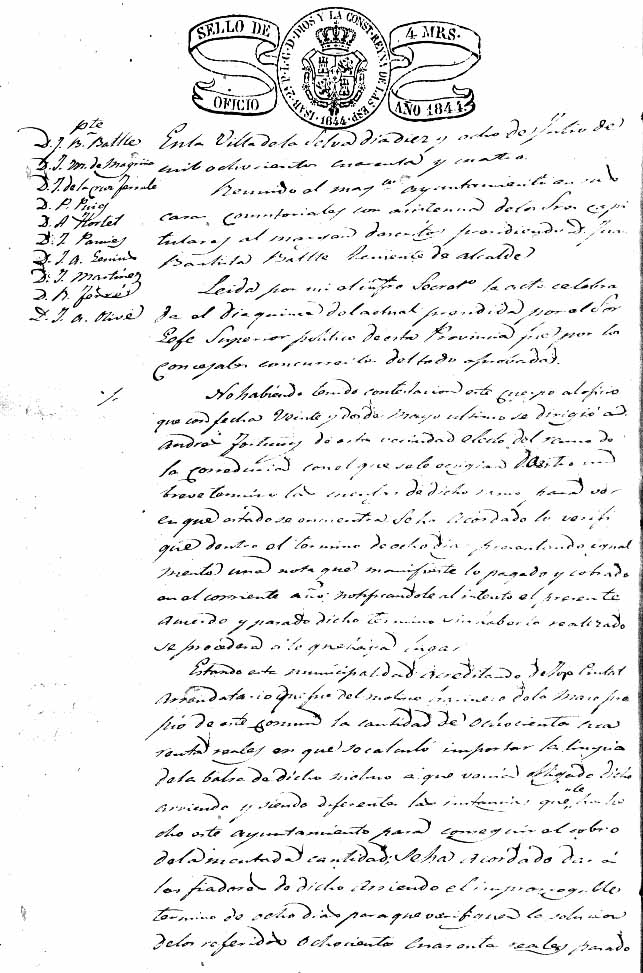 SELLO DE OFICIO
ISAB. 2ª P. L. G. D. DIOS Y LA CONST. REYNA DE LAS ESP.
1844
4 MRS.
AÑO 1844
pte
D. J. B. Batlle
D. J. M. de Magriña
D. J. de la Cruz
D. P. Puig
D. A. Hortet
D. J. Pamies
D. J. A.
D. J. Martinez
D. B. Ferré
D. J. A. Olivé
En la Villa de la Selva dia diez y ocho de Julio de
mil ochocientos cuarenta y cuatro.
Reunido el mag.co ayuntamiento en su
casa consistoriales con asistencia de los Sres capi
tulares al margen presidiendo D. Juan
Bautista Batlle teniente de alcalde
Leida por mi el Secreto la acta celebra
da el dia quince del actual precidida por el Sor
Gefe Superior politico de esta Provincia fue por los
concejales concurrentes del todo aprobada.
No habiendo tenido contestacion este cuerpo al oficio
que con fecha veinte y dos de Mayo ultimo se dirigió a
Andrés Fortuny de esta vecindad del ramo de
la con el que se le exigian dentro un
breve termino las de dicho ramo para ver
en que estado se encuentra Se ha acordado lo verifi
que dentro el termino de ocho dias presentando igual
mente una nota que manifieste lo pagado y cobrado
en el corriente año; notificandole al intento el presente
acuerdo y pasado dicho termino sin haberlo realizado
se procederá a lo que haya lugar
Estando esta municipalidad acreditando de Jose
Arrendatario que fue del molino arinero de la
pio de este comun la cantidad de Ochocientos cua
renta reales en que se calculó importar la limpia
de la balsa de dicho molino a que venia obligado dicho
arriendo y siendo diferentes las instancias que le ha he
cho este ayuntamiento para conseguir el cobro
de la mentada cantidad; Se ha acordado dar á
los fiadores de dicho arriendo el improrrogable
termino de ocho dias para que verifiquen la solucion
de los referidos Ochocientos Cuarenta reales pasado